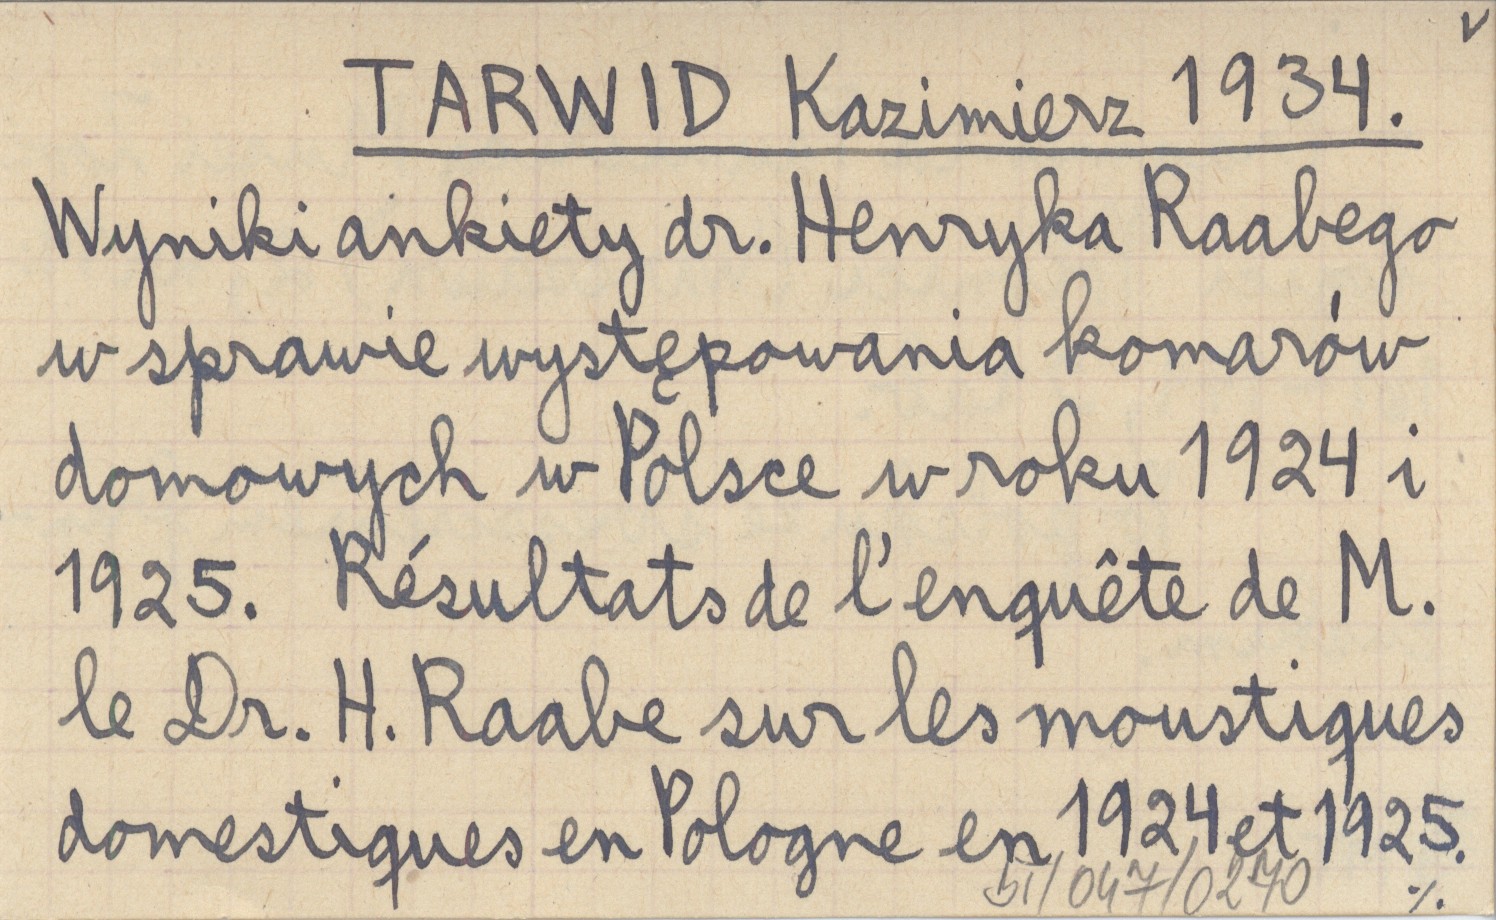 TARWID Kazimierz 1934.
Wyniki ankiety dr. Henryka Raabego
w sprawie występowania komarów
domowych w Polsce w roku 1924 i
1925. Résultats de l'enquête de M.
le Dr. H. Raabe sur les moustiques
domestiques en Pologne en 1924 et 1925.
BI/047/0270 ./.